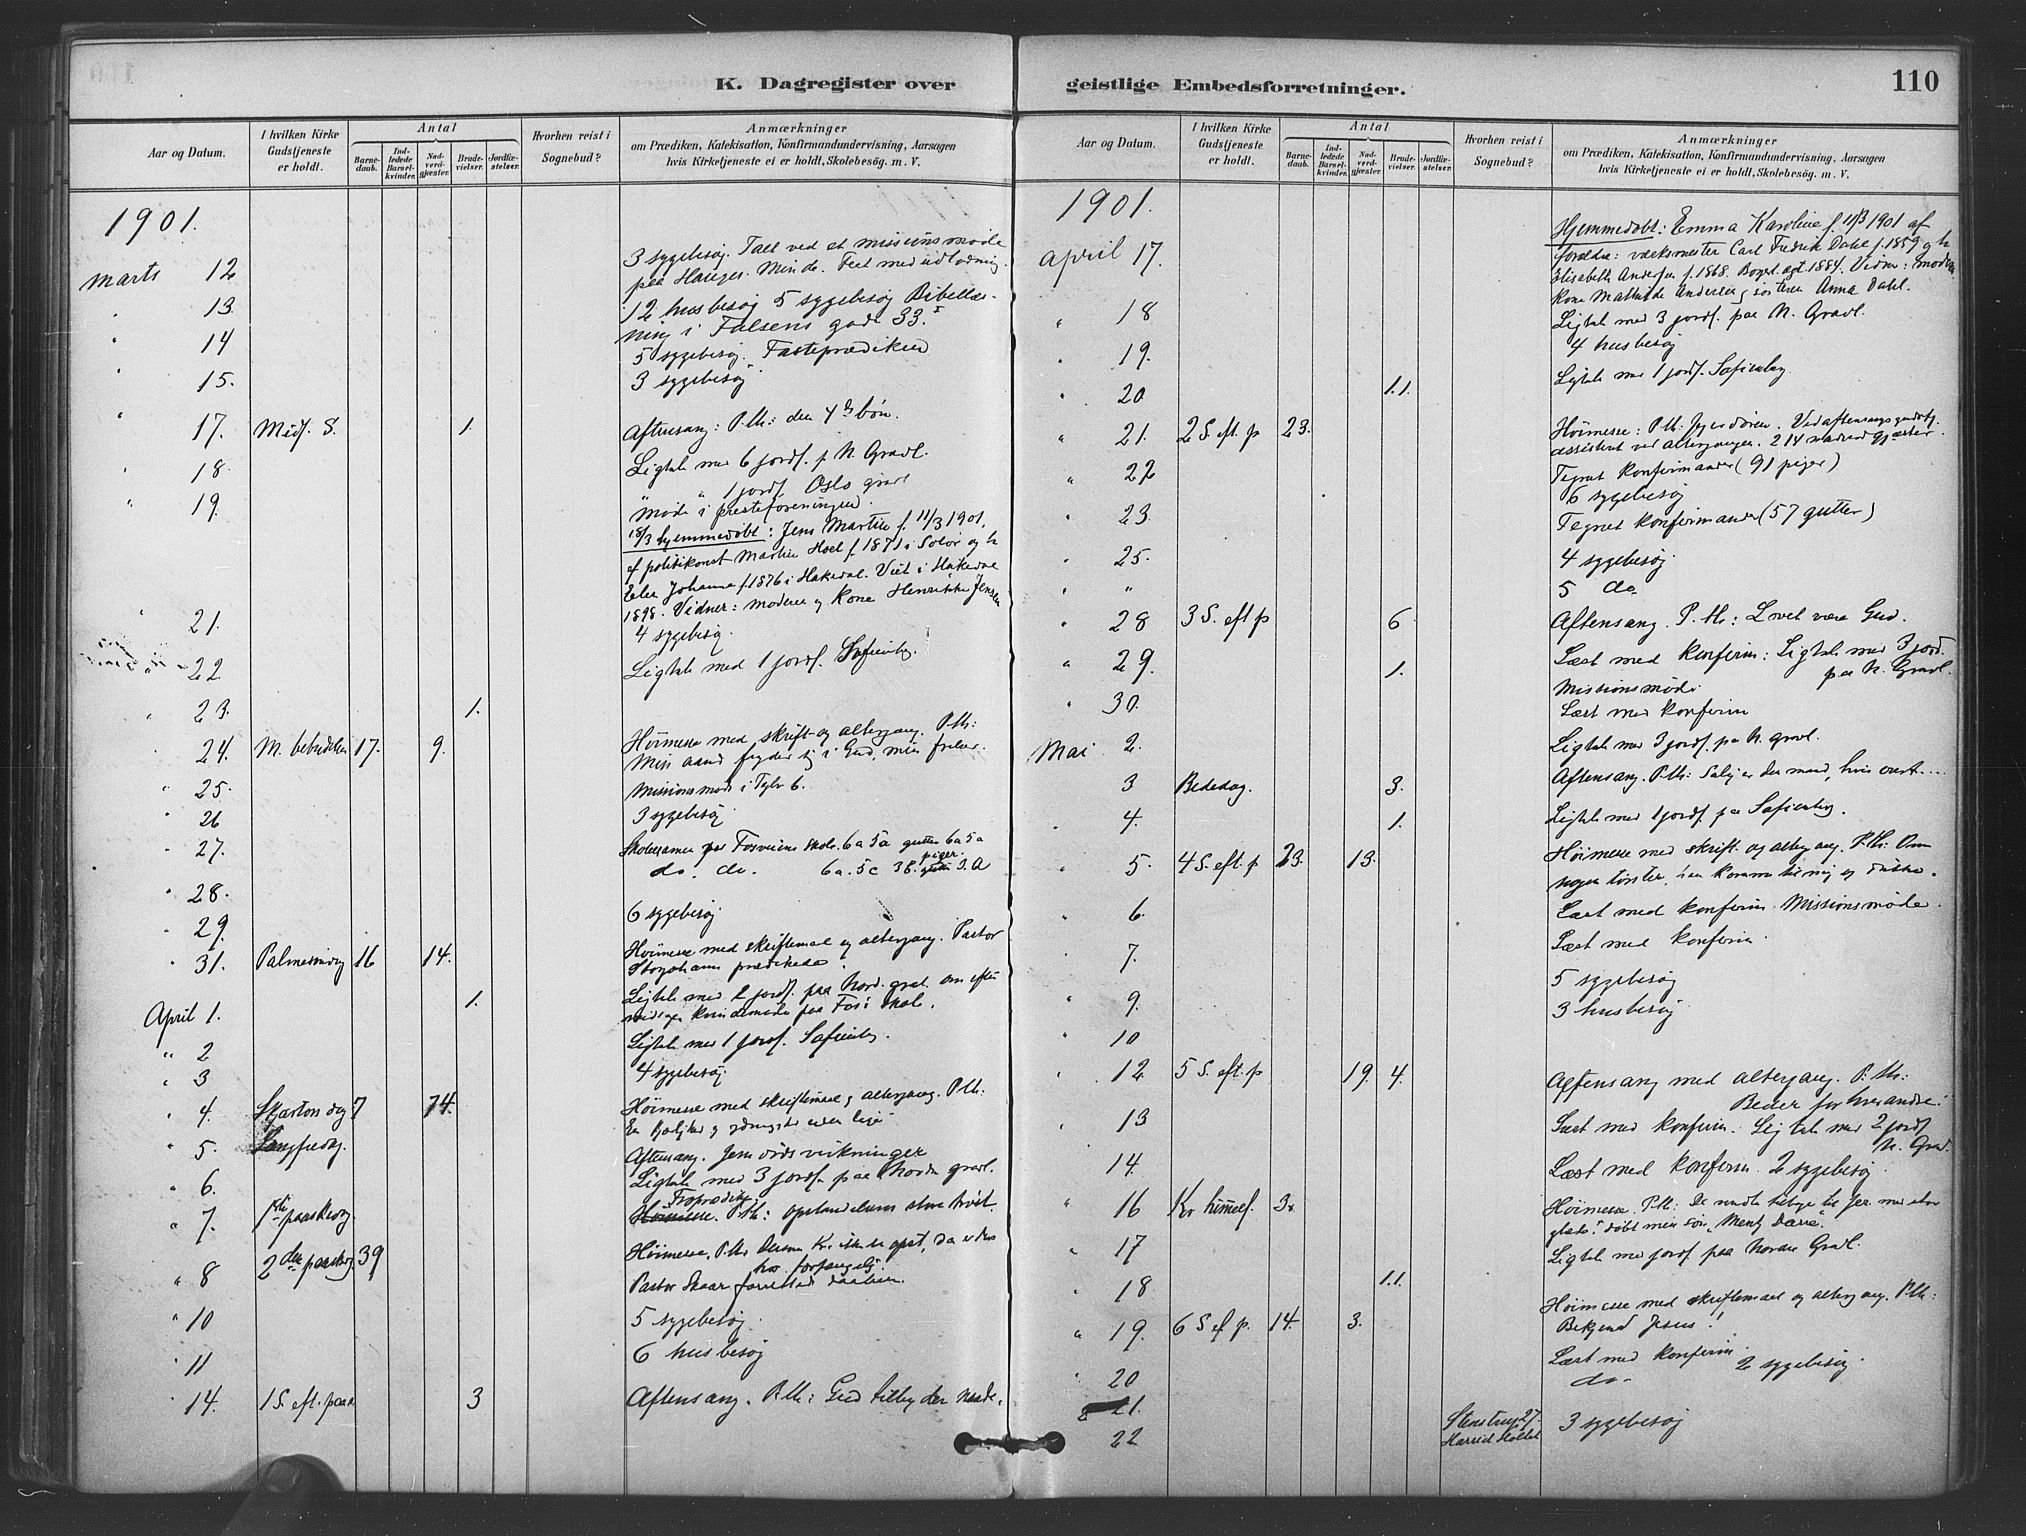 K. Dagregister over
Aar og Datum.
I hvilken Kirke
Gudstjeneste
er holdt.
Antal
Barne-
daab.
Ind-
ledede
Barsel-
kvinder.
Nad-
verd-
gjæster.
Brude-
vielser.
Jordfæ-
stelser.
Hvorhen reist i
Sognebud?
Anmærkninger
om Prædiken, Katekisation, Konfirmandundervisning, Aarsagen
hvis Kirketjeneste ei er holdt, Skolebesög. m. V.
1901.
marts 12
3 sygebesøj. Tale ved et missionsmøde
paa Hauges Minde. Fest med udlodning.
" 13.
12 husbesøj 5 sygebesøj Bibellæs-
ning i Falsens gade 33.
" 14
5 sygebesøj. Fasteprædiken
" 15.
3 sygebesøj
" 17. Midf. S. 1.
Aftensang: P. th: den 4de bøn.
" 18.
Ligtale med 6 jordf. p N Gravl.
" " 1 jordf. Oslo gravl
" 19.
møde i presteforeningen
18/3 hjemmedøbt: Jens Martin f. 11/3 1901.
af politikonst Martin Hoel f. 1871 i Solør og h
Johanne f. 1876 i Hakedal. Viet i Hakedal
1898. Vidner: moderen og Kone Henrikke Jensen
" 21.
4 sygebesøj.
" 22
Ligtale med 1 jordf. Sofienbg.
" 23. 1.
24. M. bebudelse 17. 9.
Høimesse med skrift og altergang. P. th:
Min aand fryder sig i Gud, min frelser.
" 25.
Missionsmøde i 6.
" 26
3 sygebesøj
" 27.
Skoleexamen paa Fosveiens skole. 6 a 5 a gutter 6 a 5 a
piger.
" 28.
do. do. 6a. 5c 3. A
" 29.
6 sygebesøj
" 31. Palmesøndag 16 14.
Høimesse med skriftemaal og altergang. Pastor
Storjohann prædikede.
April 1. 1.
Ligtale med 2 jordf. paa Nord. gravl. om efter
middagen kvindemøde paa Fos: skole.
" 2
Ligtale med 1 jordf. Sofienbg.
" 3
4 sygebesøj
" 4. Skjærtorsdag 7 74.
Høimesse med skriftemaal og altergang. P. th:
" 5. Langfredag.
Aftensang. Jesu døds virkninger
" 6.
Ligtale med 3 jordf. paa Nordre gravl.
" 7. 1ste paaskedag.
Froprædiken
Høimesse. P. th: opstandelsens store
" 8 2den paaskedag 39
Høimesse. P. th. Dersom Kr. ikke er opst, da er
tro forfængelig.
Pastor Skaar forrettede daaben.
" 10
5 sygebesøj.
" 11
6 husbesøj
" 14. 1 S. eft. paask. 3
Aftensang. P. th: Gud tilbyder naade.
geistlige Embedsforretninger. 110
Aar og Datum.
I hvilken Kirke
Gudstjeneste
er holdt.
Antal
Barne-
daab.
Ind-
ledede
Barsel-
kvinder.
Nad-
verd-
gjæster.
Brude-
vielser.
Jordfæ-
stelser.
Hvorhen reist i
Sognebud?
Anmærkninger
om Prædiken, Katekisation, Konfirmandundervisning, Aarsagen
hvis Kirketjeneste ei er holdt, Skolebesög. m. V.
1901.
April 17.
Hjemmedøbt: Emma Karoline f. 11/3 1901 af
forældre: værksmester Carl Fredrik Dahl f. 1859 og h
Elisabeth Andersen f. 1868. Borgerl. ægt. 1884. Vidner: moderen
Kone Mathilde Andersen og søsteren Anna Dahl.
" 18
Ligtale med 3 jordf. paa N. Gravl.
" 19.
4 husbesøj
" 20 1.1.
Ligtale med 1 jordf. Sofienbg.
" 21. 2 S. eft. p 23.
Høimesse: P. th. Jeg er døren. Ved aftensangsgudstj.
assistent ved altergangen. 214 nadverdgjæster.
" 22
Tegnet konfirmander (91 piger)
6 sygebesøj
" 23.
Tegnet konfirmander (57 gutter)
" 25.
4 sygebesøj
" "
5 do
" 28 3 S. eft p 6
Aftensang. P. th: Lovet være Gud.
" 29. 1.
Læst med konfirm: Ligtale med 3 jord.
paa N. Gravl.
" 30.
Missionsmøde
Læst med konfirm
Mai 2.
Ligtale med 3 jordf. paa N. gravl.
3 Bededag. 3.
Aftensang. P. th: Salig er den mand, hvis overt....
" 4. 1.
Ligtale med 1 jordf. paa Sofienbg.
" 5. 4 S. eft. p 23. 13.
Høimesse med skrift. og altergang. P. th: Om
nogen tørster, han komme til mig og drikke.
" 6.
Læst med konfirm. Missionsmøde.
" 7.
Læst med konfirm.
" 9.
5 sygebesøj
" 10
3 husbesøj
" 12. 5 S. eft. p 19. 4.
Aftensang med altergang. P. th:
Beder for hverandre.
" 13
Læst med konfirm. Ligtale med 2 jordf
N. Grav.
" 14.
Læst med konfirm. 2 sygebesøj.
" 16 Kr himmelf. 3.
Høimesse. P. th: De vendte tilbage til Jer. med stor
glæde. døbt min søn,
" 17
Ligtale med jordf. paa Nordre Gravl.
" 18. 1.1.
" 19. 6 S ef p. 14. 3.
Høimesse med skriftemaal og altergang. P. th:
Bekjend Jesus!
" 20
Læst med konfirm.
2 sygebesøj.
21.
do.
22 Stenstrup 27.
Harriet Holtet
3 sygebesøj